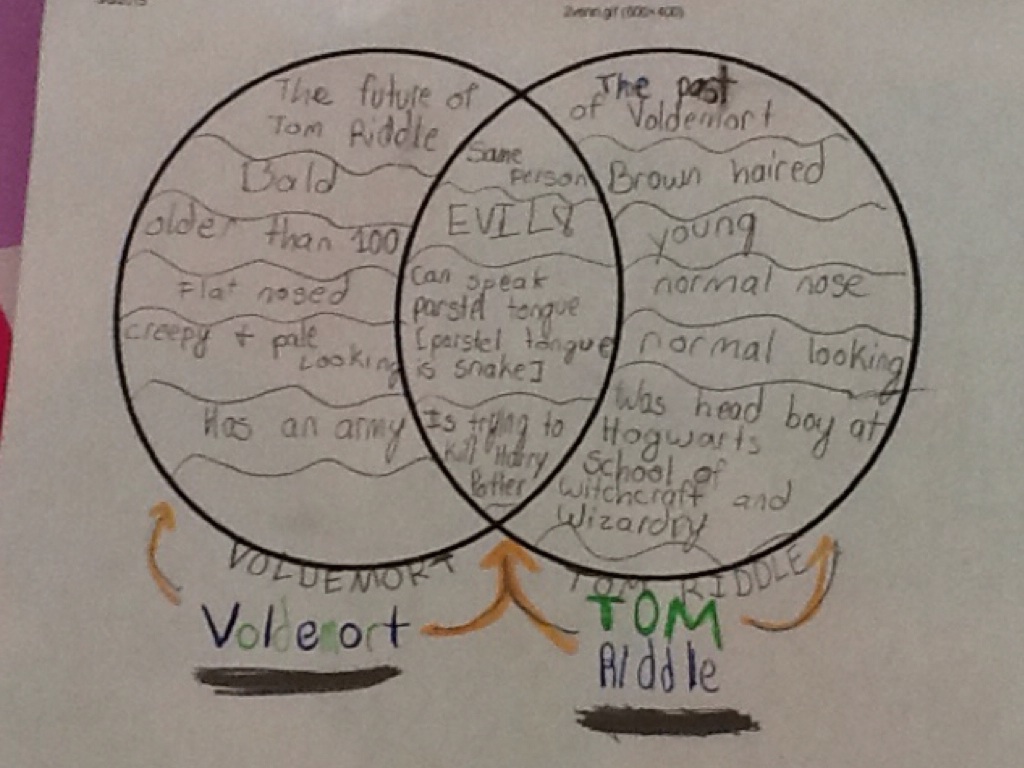 2venn.gif (600×400)
The future of
Tom Riddle
Bald
older than 100
Flat nosed
creepy + pale
Looking
Has an army
Same
person
EVIL
Can speak
parstel tongue
[parstel tongue
is snake]
Is trying to
Kill Harry
Potter
The past
of Voldemort
Brown haired
young
normal nose
normal looking
Was head boy at
Hogwarts
School of
witchcraft and
Wizardry
VOLDEMORT
TOM RIDDLE
Voldemort
TOM
Riddle